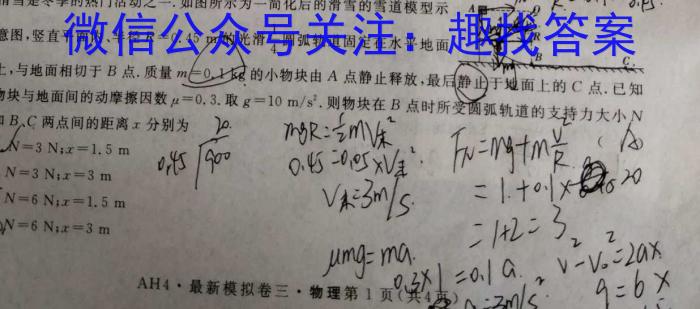 滑雪是冬季的热门活动之一.如图所示为一简化后的滑雪的雪道模型示
意图,竖直平面内半径R=0.45 m的光滑1/4圆弧轨道固定在水平地面
微信公众号关注：趣找答案
上,与地面相切于B点.质量m=0.1 kg的小物块由A点静止释放,最后静止于地面上的C点.已知
物块与地面间的动摩擦因数μ=0.3.取g=10 m/s².则物块在B点时所受圆弧轨道的支持力大小N
和B、C两点间的距离x分别为
N=3 N;x=1.5 m
N=3 N;x=3 m
N=6 N;x=1.5 m
N=6 N;x=3 m
20
0.45 900
mgR=½mV末²
0.45=0.05×V末²
V末=3m/s.
μmg=ma.
0.3×1=0.1a.
a=3m/s²
F_N=mg+m V²/R
(A)
=1.+0.1×20
=1+2=3
V²-V₀²=2ax
9=6x
AH4·最新模拟卷三·物理第1页(共4页)